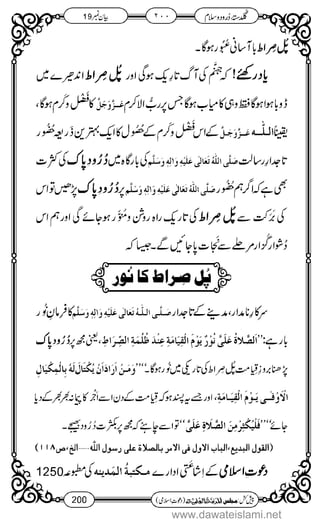 بیان نمبر 19 ۲۰۰ گلدستۂ دُرُود و سلام
پُل صِراط بآسانی عُبُور ہوگا۔
یاد رکھئے! کہ جہنَّم کی آگ تاریک ہوگی اور پُل صِراط اندھیرے میں
ڈوبا ہوا ہوگا فقط وہی کامیاب ہوگا جس پر ربُّ الاکرم عَزَّوَجَلَّ کا فَضْل و کرم ہوگا،
یقیناً اللّٰہ عَزَّوَجَلَّ کے اس فَضْل و کرم کے حُصُول کا ایک بہترین ذریعہ حُضُور
تاجدارِ رسالت صَلَّی اللہُ تَعَالٰی عَلَیْہِ وَاٰلِہٖ وَسَلَّم کی بارگاہ میں دُرُودِ پاک کی کثرت
بھی ہے کہ اگر ہم حُضُور صَلَّی اللہُ تَعَالٰی عَلَیْہِ وَاٰلِہٖ وَسَلَّم پر دُرُودِ پاک پڑھیں تو اس
کی بَرَکت سے پُل صِراط کی تاریک راہ روشن و مُنوَّر ہوجائے گی اور ہم اس
دُشوار گُزار مرحلے سے نَجات پاجائیں گے۔ جیسا کہ
پُل صِراط کا نُور
سرکارِ نامدار، مدینے کے تاجدار صَلَّی اللہُ تَعَالٰی عَلَیْہِ وَاٰلِہٖ وَسَلَّم کا فرمانِ نُور
بار ہے: ’’اَلصَّلَاۃُ عَلَیَّ نُوْرٌ یَوْمَ الْقِیَامَۃِ عِنْدَ ظُلْمَۃِ الصِّرَاطِ، یعنی مجھ پر دُرُودِ پاک
پڑھنا بروزِ قیامت پُل صِراط کی تاریکی میں نُور ہوگا۔‘‘ ’’وَمَنْ اَرَادَ اَنْ یُّکْتَالَ لَہٗ بِالْمِکْیَالِ
الْاَوْفٰی یَوْمَ الْقِیَامَۃِ، اور جسے یہ پسند ہو کہ قیامت کے دن اسے اَجْر کا پیمانہ بھر بھر کے دیا
جائے‘‘ ’’فَلْیُکْثِرْ مِنَ الصَّلَاۃِ عَلَیَّ‘‘ تو اسے چاہئے کہ مجھ پر کثرت سے دُرُود بھیجے۔
(القول البدیع، الباب الاول فی الامر بالصلاۃ علی رسول اللہ...الخ، ص۱۱۸)
دعوتِ اسلامی کے اِشاعَتی ادارے مکتبۃُ المدینہ کی مطبوعہ 1250
200
www.dawateislami.net